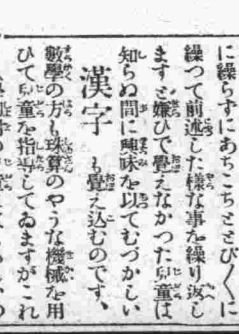 に繰らずにあちこちととび〳〵に
繰つて前述した様な事を繰り返し
ますと嫌ひで覺えなかつた兒童は
知らぬ間に興味を以てむづかしい
漢字も覺え込むのです、
數學の方も珠算のやうな機械を用
ひて兒童を指導してゐますがこれ